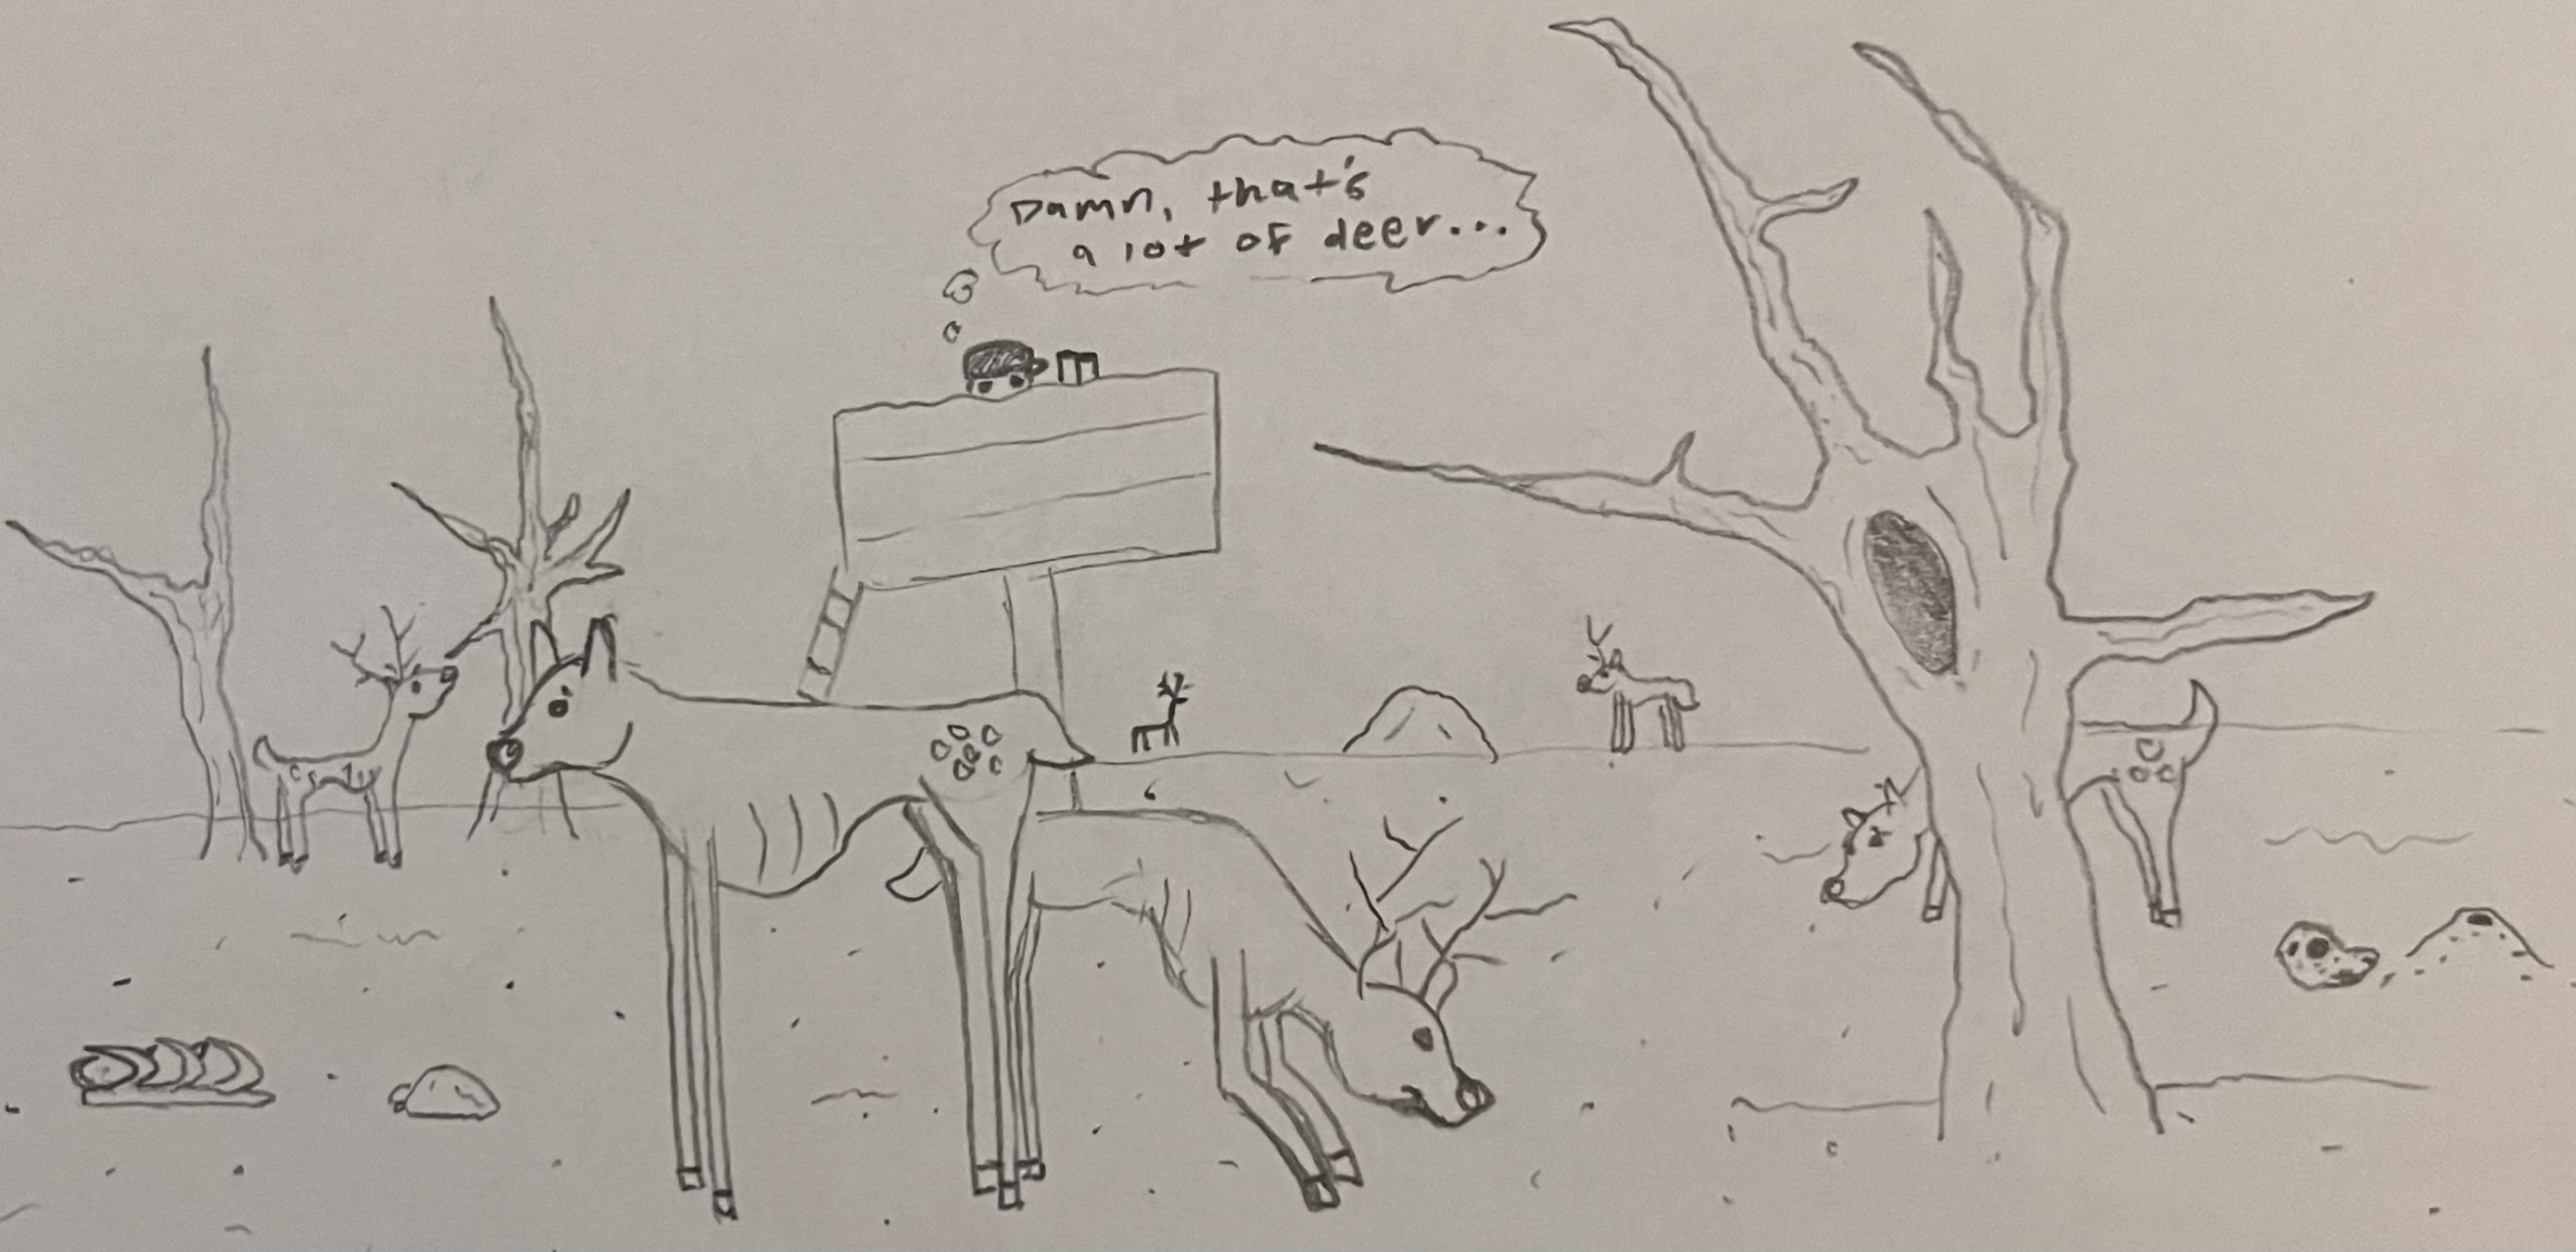 Damn, that's
a lot of deer...